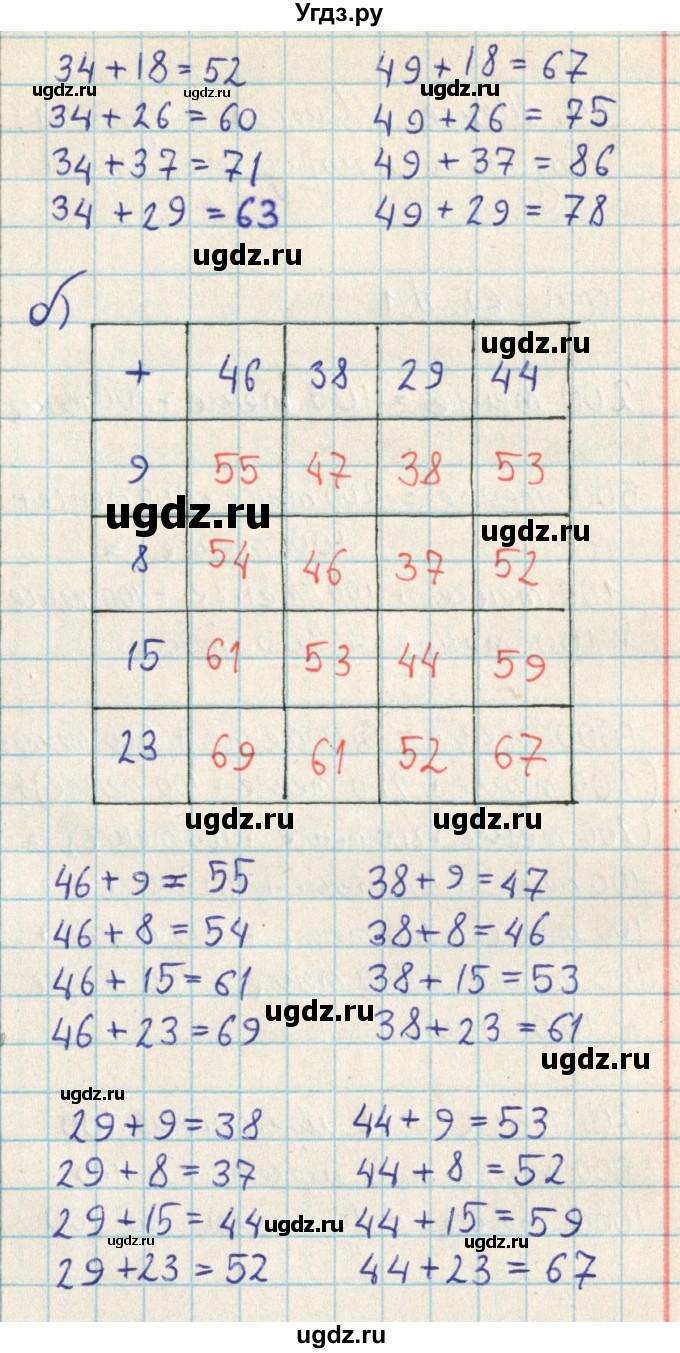 Угдз.ру
34 + 18 = 52 49 + 18 = 67
ugdz.ru ugdz.ru ugdz.ru
34 + 26 = 60 49 + 26 = 75
34 + 37 = 71 49 + 37 = 86
34 + 29 = 63 49 + 29 = 78
ugdz.ru
б)
ugdz.ru
+ 46 38 29 44
9 55 47 38 53
ugdz.ru ugdz.ru
8 54 46 37 52
15 61 53 44 59
23 69 61 52 67
ugdz.ru ugdz.ru
46 + 9 = 55 38 + 9 = 47
46 + 8 = 54 38 + 8 = 46
46 + 15 = 61 38 + 15 = 53
ugdz.ru
46 + 23 = 69 38 + 23 = 61
ugdz.ru
ugdz.ru
29 + 9 = 38 44 + 9 = 53
29 + 8 = 37 44 + 8 = 52
29 + 15 = 44 ugdz.ru 44 + 15 = 59
ugdz.ru ugdz.ru
29 + 23 = 52 44 + 23 = 67
ugdz.ru